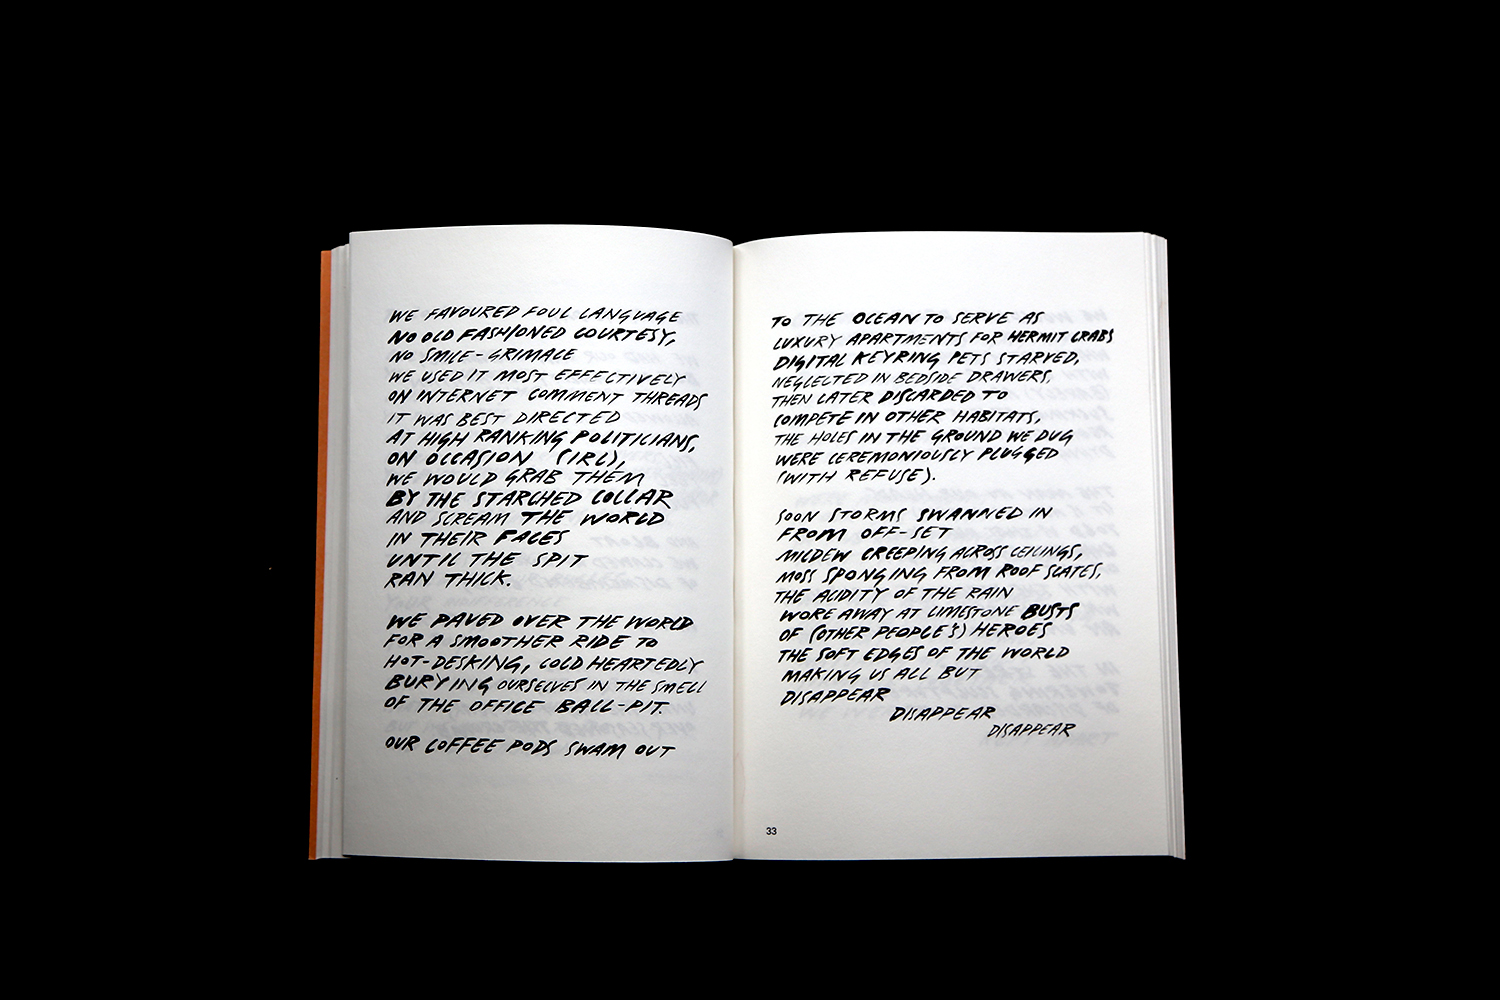 WE FAVOURED FOUL LANGUAGE
NO OLD FASHIONED COURTESY,
NO SMILE - GRIMACE
WE USED IT MOST EFFECTIVELY
ON INTERNET COMMENT THREADS
IT WAS BEST DIRECTED
AT HIGH RANKING POLITICIANS,
ON OCCASION (IRL),
WE WOULD GRAB THEM
BY THE STARCHED COLLAR
AND SCREAM THE WORLD
IN THEIR FACES
UNTIL THE SPIT
RAN THICK.
WE PAVED OVER THE WORLD
FOR A SMOOTHER RIDE TO
HOT-DESKING, COLD HEARTEDLY
BURYING OURSELVES IN THE SMELL
OF THE OFFICE BALL-PIT.
OUR COFFEE PODS SWAM OUT
TO THE OCEAN TO SERVE AS
LUXURY APARTMENTS FOR HERMIT CRABS
DIGITAL KEYRING PETS STARVED,
NEGLECTED IN BEDSIDE DRAWERS,
THEN LATER DISCARDED TO
COMPETE IN OTHER HABITATS,
THE HOLES IN THE GROUND WE DUG
WERE CEREMONIOUSLY PLUGGED
(WITH REFUSE).
SOON STORMS SWANNED IN
FROM OFF-SET
MILDEW CREEPING ACROSS CEILINGS,
MOSS SPONGING FROM ROOF SLATES,
THE ACIDITY OF THE RAIN
WORE AWAY AT LIMESTONE BUSTS
OF (OTHER PEOPLE'S) HEROES
THE SOFT EDGES OF THE WORLD
MAKING US ALL BUT
DISAPPEAR
DISAPPEAR
DISAPPEAR
33